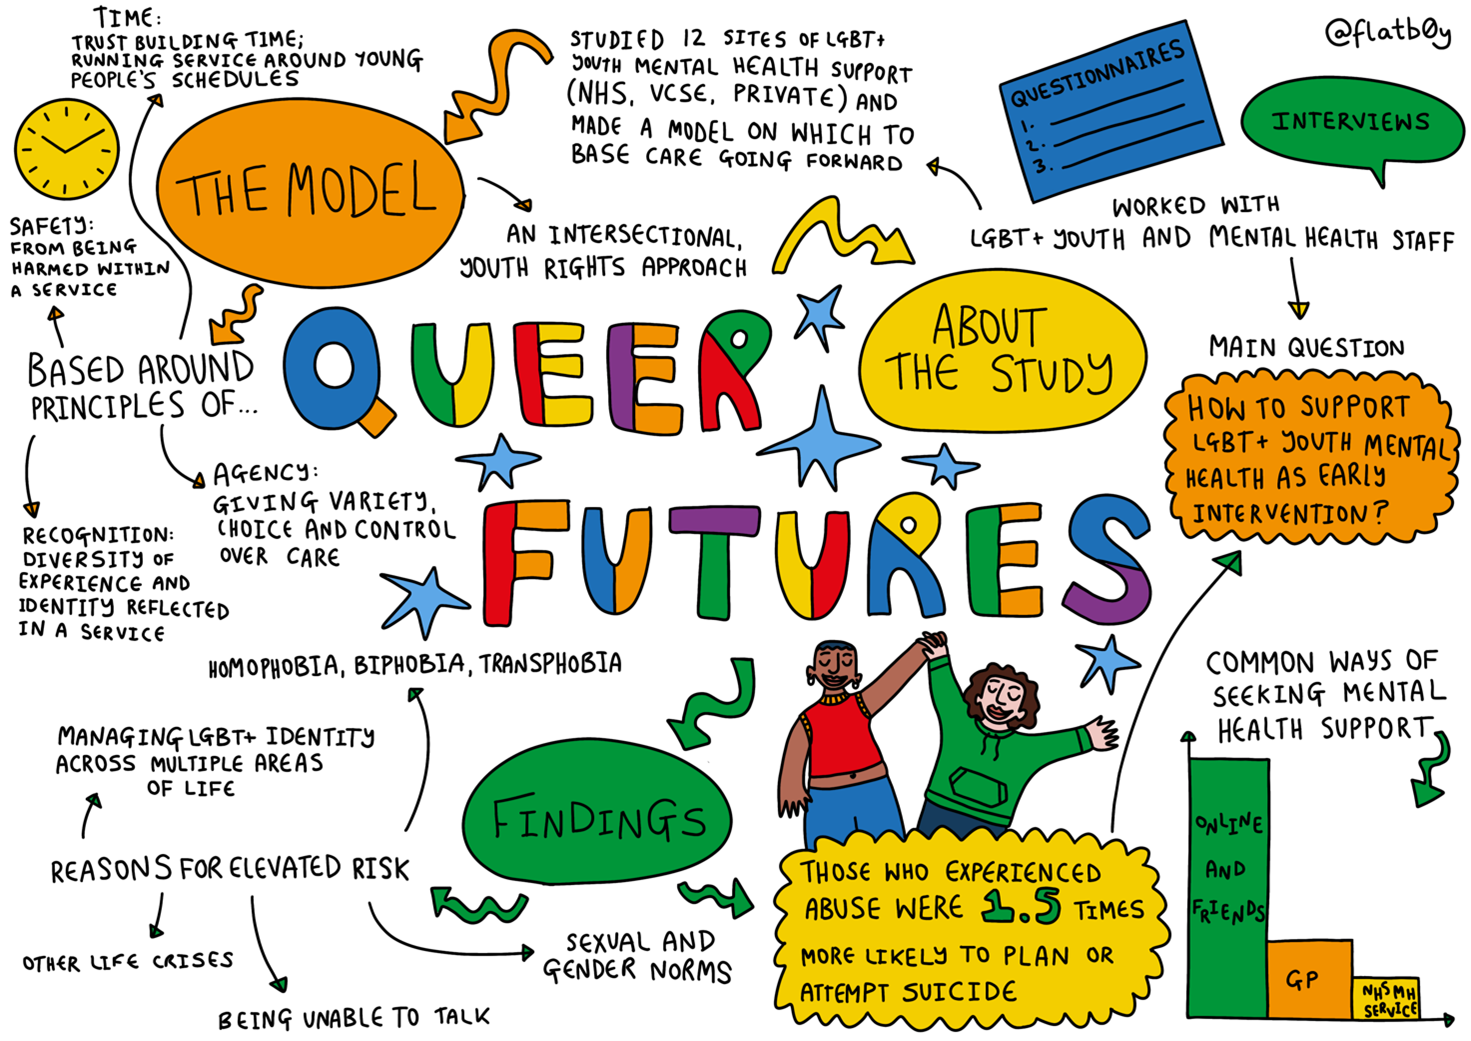 TIME:
TRUST BUILDING TIME;
RUNNING SERVICE AROUND YOUNG
PEOPLE'S SCHEDULES
THE MODEL
STUDIED 12 SITES OF LGBT+
YOUTH MENTAL HEALTH SUPPORT
(NHS, VCSE, PRIVATE) AND
MADE A MODEL ON WHICH TO
BASE CARE GOING FORWARD
QUESTIONNAIRES
1.
2.
3.
INTERVIEWS
@flatb0y
WORKED WITH
LGBT+ YOUTH AND MENTAL HEALTH STAFF
AN INTERSECTIONAL,
YOUTH RIGHTS APPROACH
SAFETY:
FROM BEING
HARMED WITHIN
A SERVICE
BASED AROUND
PRINCIPLES OF...
QUEER
FUTURES
ABOUT
THE STUDY
MAIN QUESTION
HOW TO SUPPORT
LGBT+ YOUTH MENTAL
HEALTH AS EARLY
INTERVENTION?
AGENCY:
GIVING VARIETY,
CHOICE AND CONTROL
OVER CARE
RECOGNITION:
DIVERSITY OF
EXPERIENCE AND
IDENTITY REFLECTED
IN A SERVICE
HOMOPHOBIA, BIPHOBIA, TRANSPHOBIA
MANAGING LGBT+ IDENTITY
ACROSS MULTIPLE AREAS
OF LIFE
REASONS FOR ELEVATED RISK
OTHER LIFE CRISES
BEING UNABLE TO TALK
SEXUAL AND
GENDER NORMS
FINDINGS
THOSE WHO EXPERIENCED
ABUSE WERE 1.5 TIMES
MORE LIKELY TO PLAN OR
ATTEMPT SUICIDE
COMMON WAYS OF
SEEKING MENTAL
HEALTH SUPPORT
ONLINE
AND
FRIENDS
GP
NHS MH
SERVICE